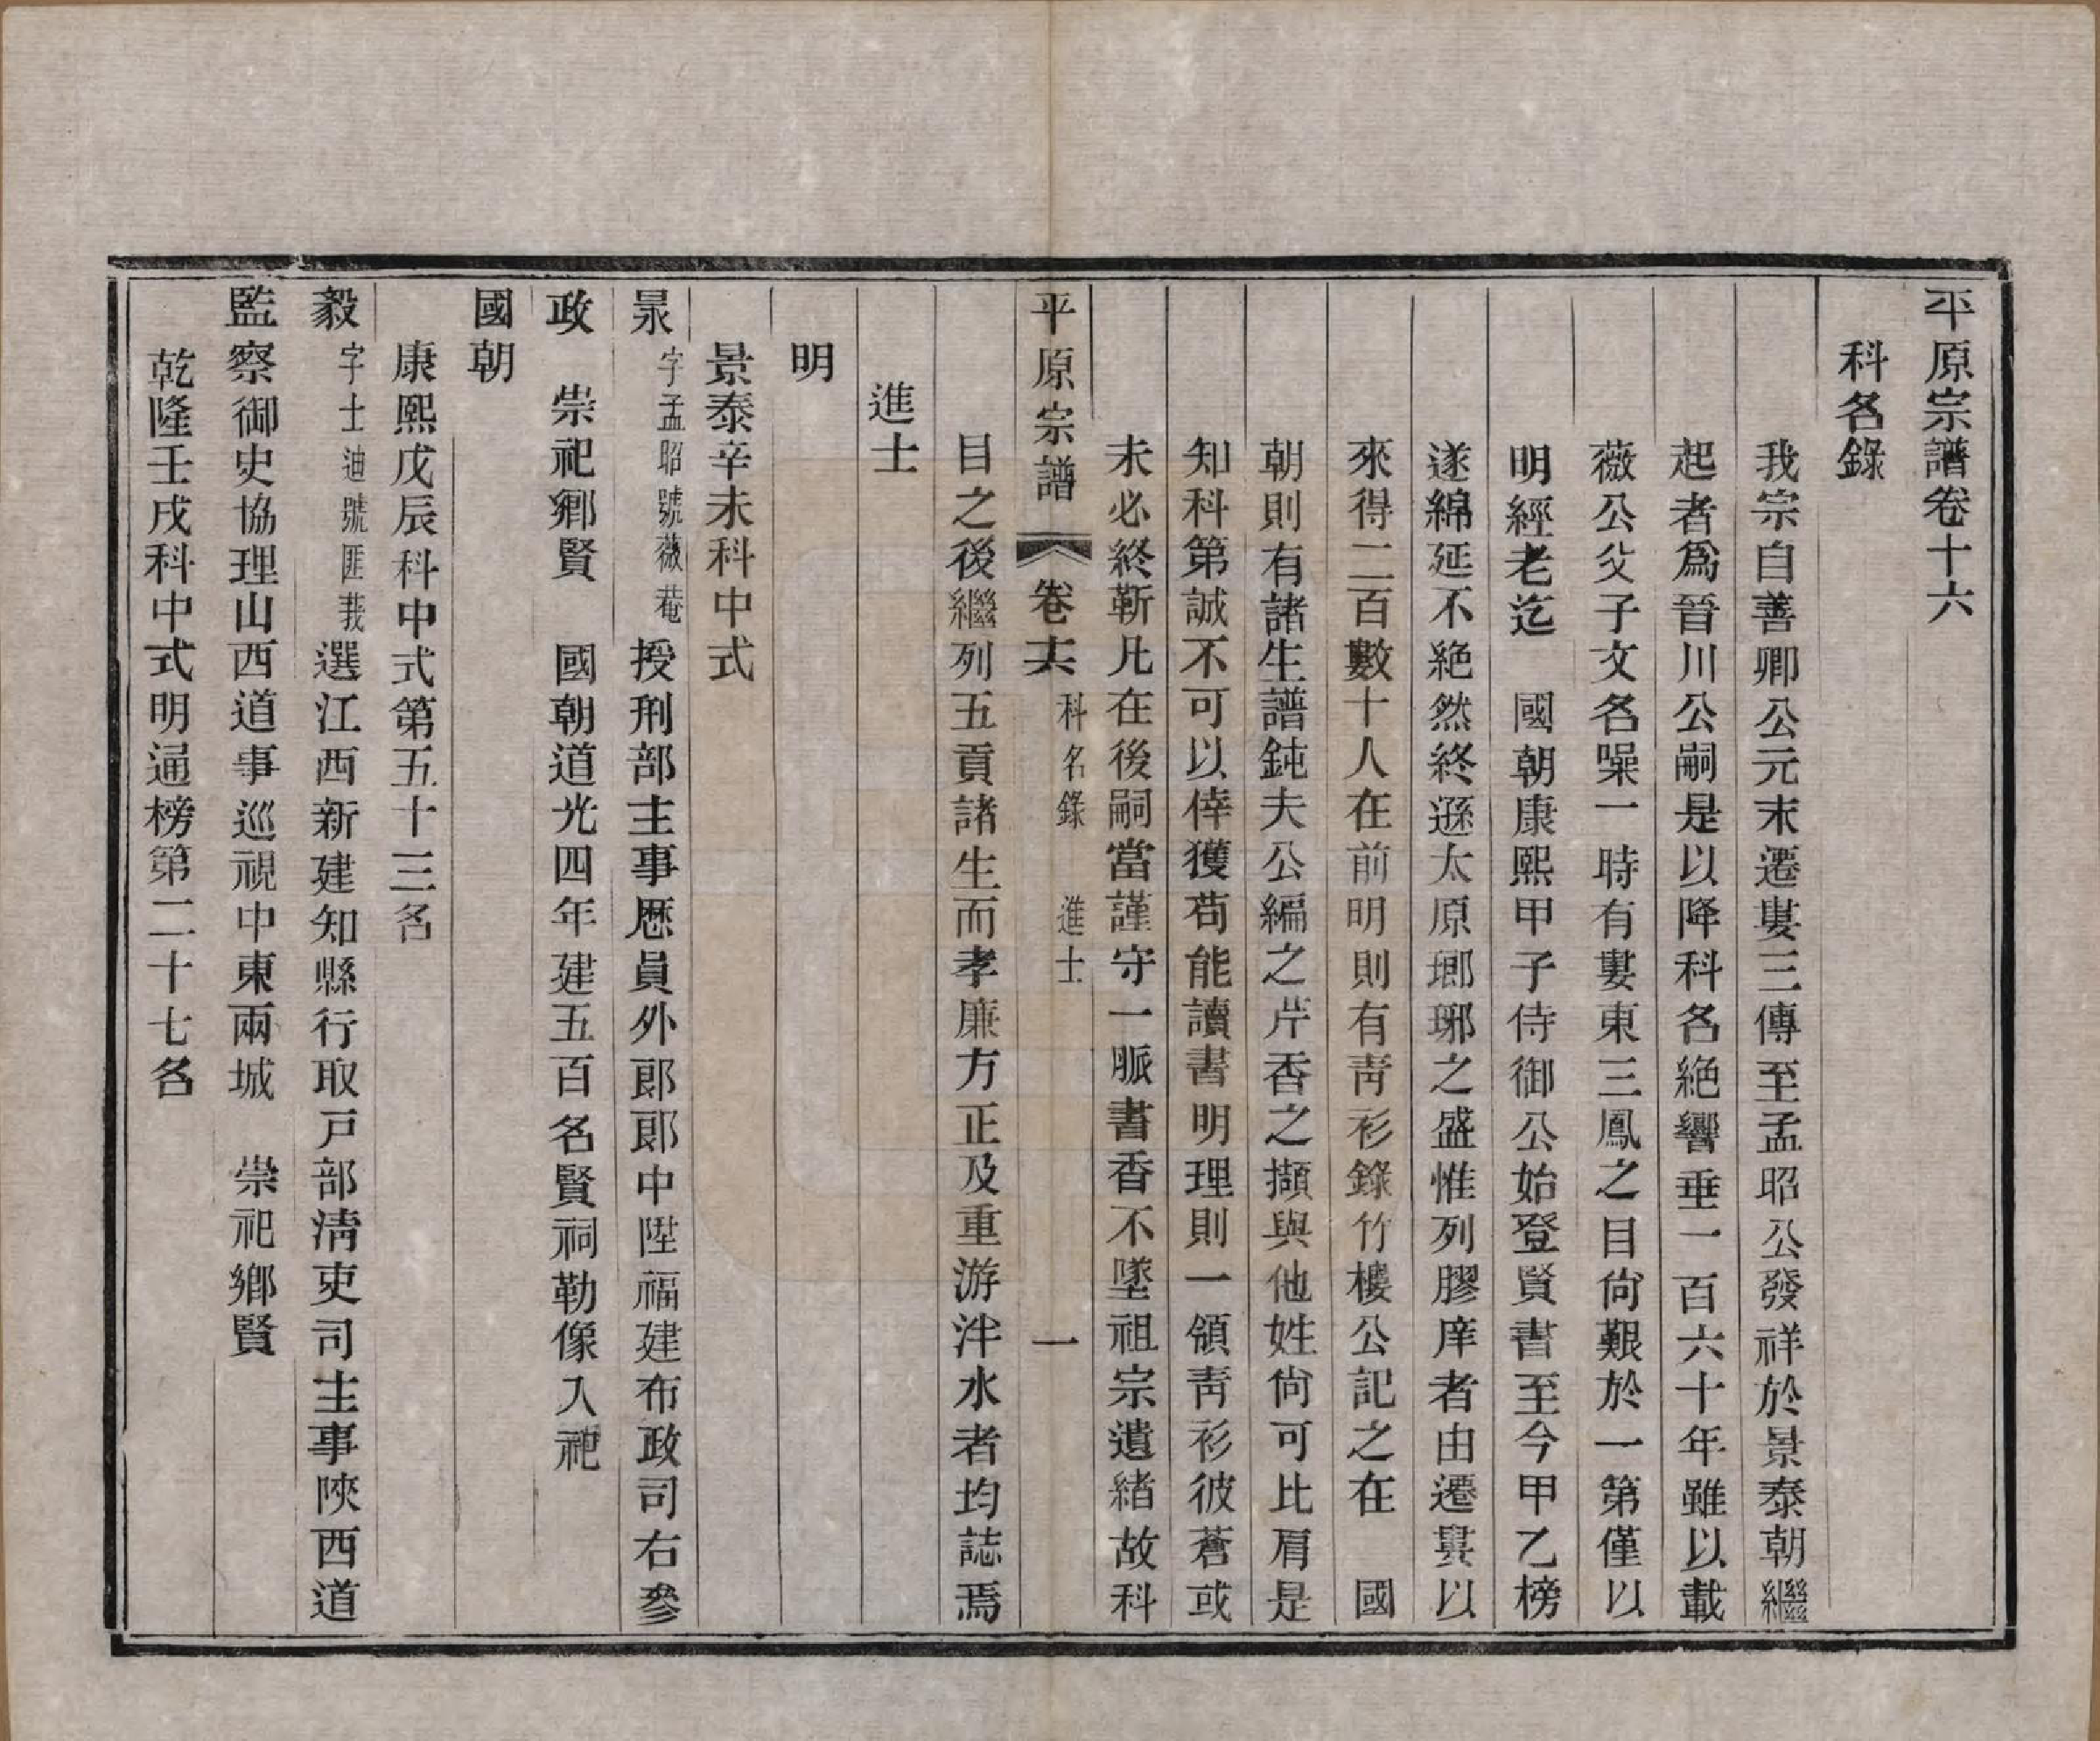 平原宗譜卷十六
科名錄
我宗自善卿公元末遷婁三傳至孟昭公發祥於景泰朝繼
起者爲晉川公嗣是以降科名絶響垂一百六十年雖以載
薇公父子文名噪一時有婁東三鳳之目尙艱於一第僅以
明經老迄　國朝康熙甲子侍御公始登賢書至今甲乙榜
遂綿延不絶然終遜太原瑯琊之盛惟列膠庠者由遷婁以
來得二百數十人在前明則有靑衫錄竹樓公記之在　國
朝則有諸生譜鈍夫公編之芹香之擷與他姓尙可比肩是
知科第誠不可以倖獲苟能讀書明理則一領靑衫彼蒼或
未必終靳凡在後嗣當謹守一脈書香不墜祖宗遺緖故科
平原宗譜　卷十六　科名錄　進士　一
目之後繼列五貢諸生而孝廉方正及重游泮水者均誌焉
進士
明
景泰辛未科中式
杲字孟昭號薇菴授刑部主事歷員外郞郞中陞福建布政司右參
政　崇祀鄉賢　國朝道光四年建五百名賢祠勒像入祀
國朝
康熙戊辰科中式第五十三名
毅字士迪號匪莪選江西新建知縣行取戸部淸吏司主事陝西道
監察御史協理山西道事巡視中東兩城　崇祀鄉賢
乾隆壬戌科中式明通榜第二十七名